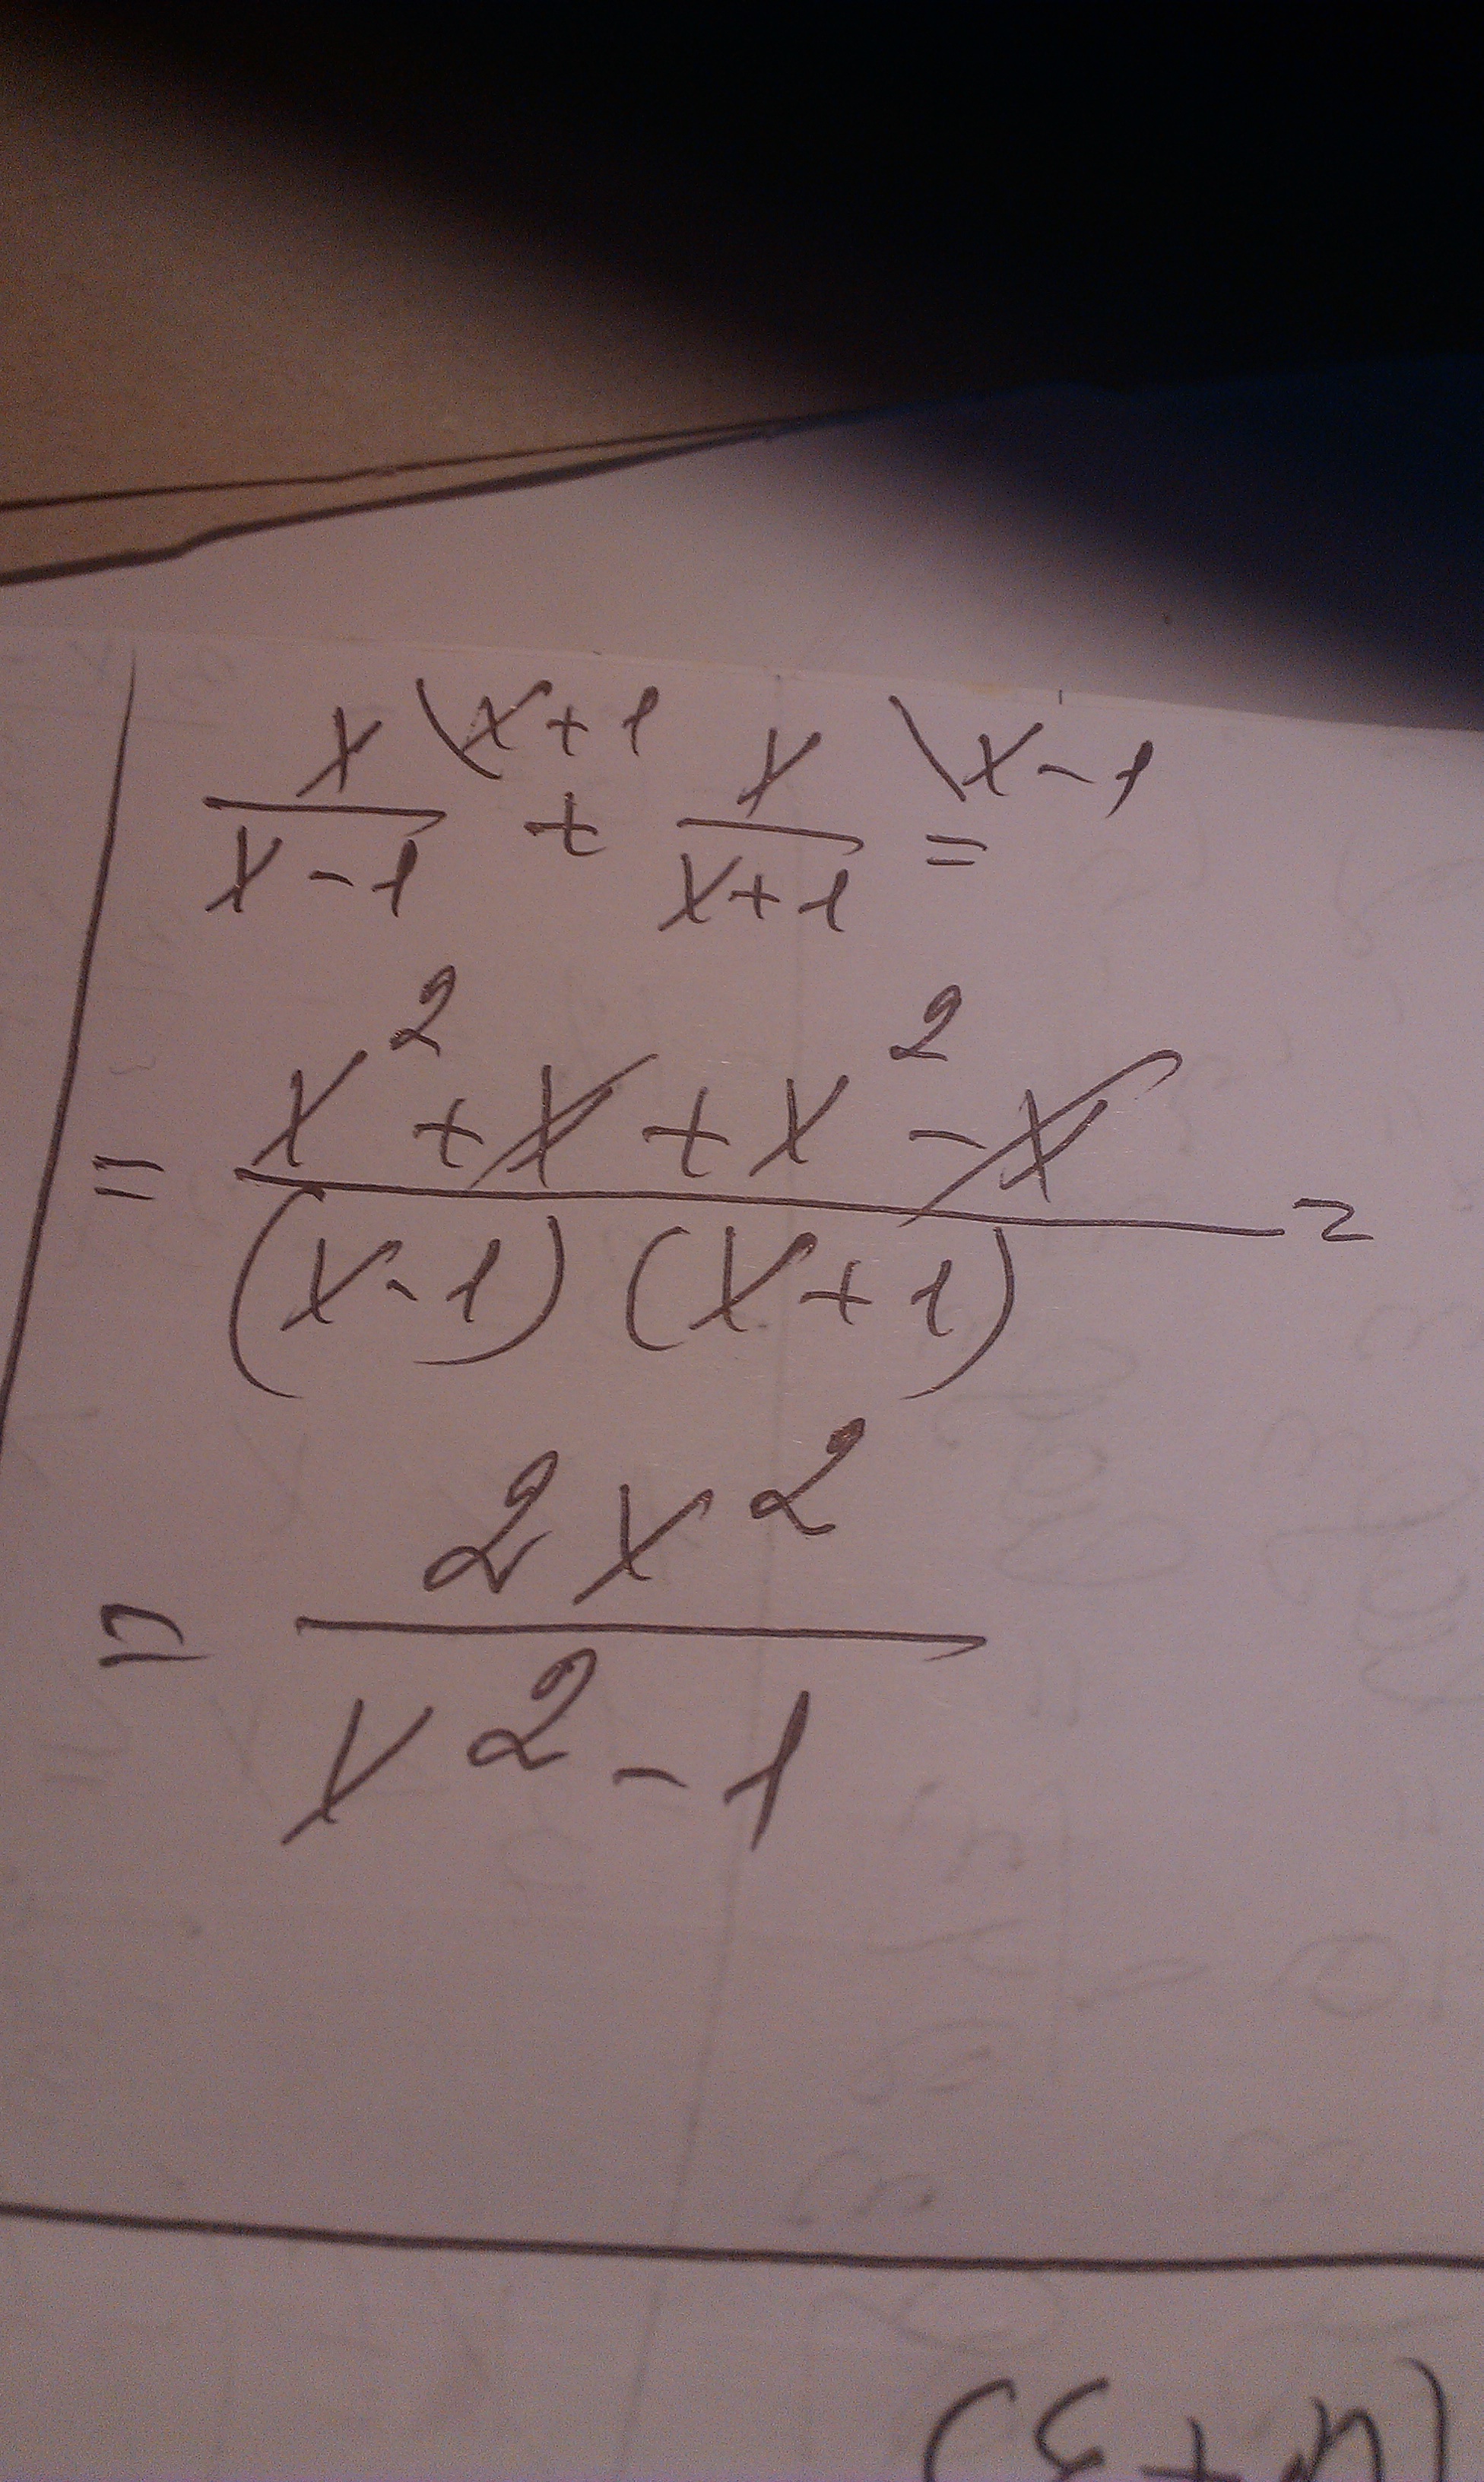 x/(x-1) \x+1 + x/(x+1) \x-1 =
= (x² + x + x² - x)/((x-1)(x+1)) =
= 2x²/(x² - 1)